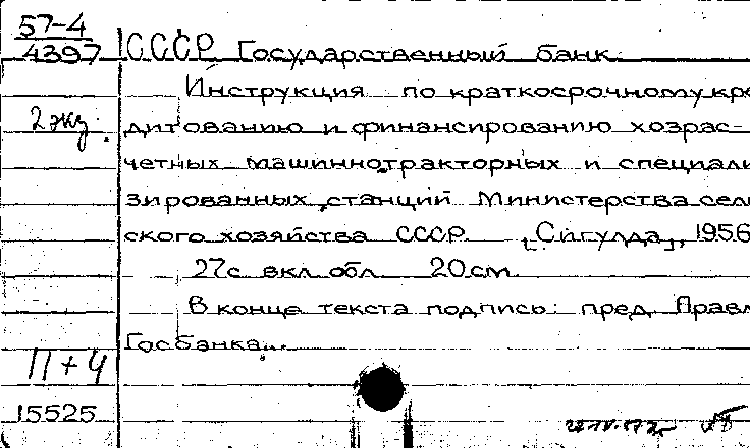 57-4
4397
СССР Государственный банк.
Инструкция по краткосрочному кре
2 экз.
дитованию и финансированию хозрас-
четных машинно-тракторных и специали
зированных станций Министерства сель
ского хозяйства СССР. [Сигулда], 1956
27с. вкл. обл. 20см.
В конце текста подпись: пред. Правл
Госбанка...
11+4
15525